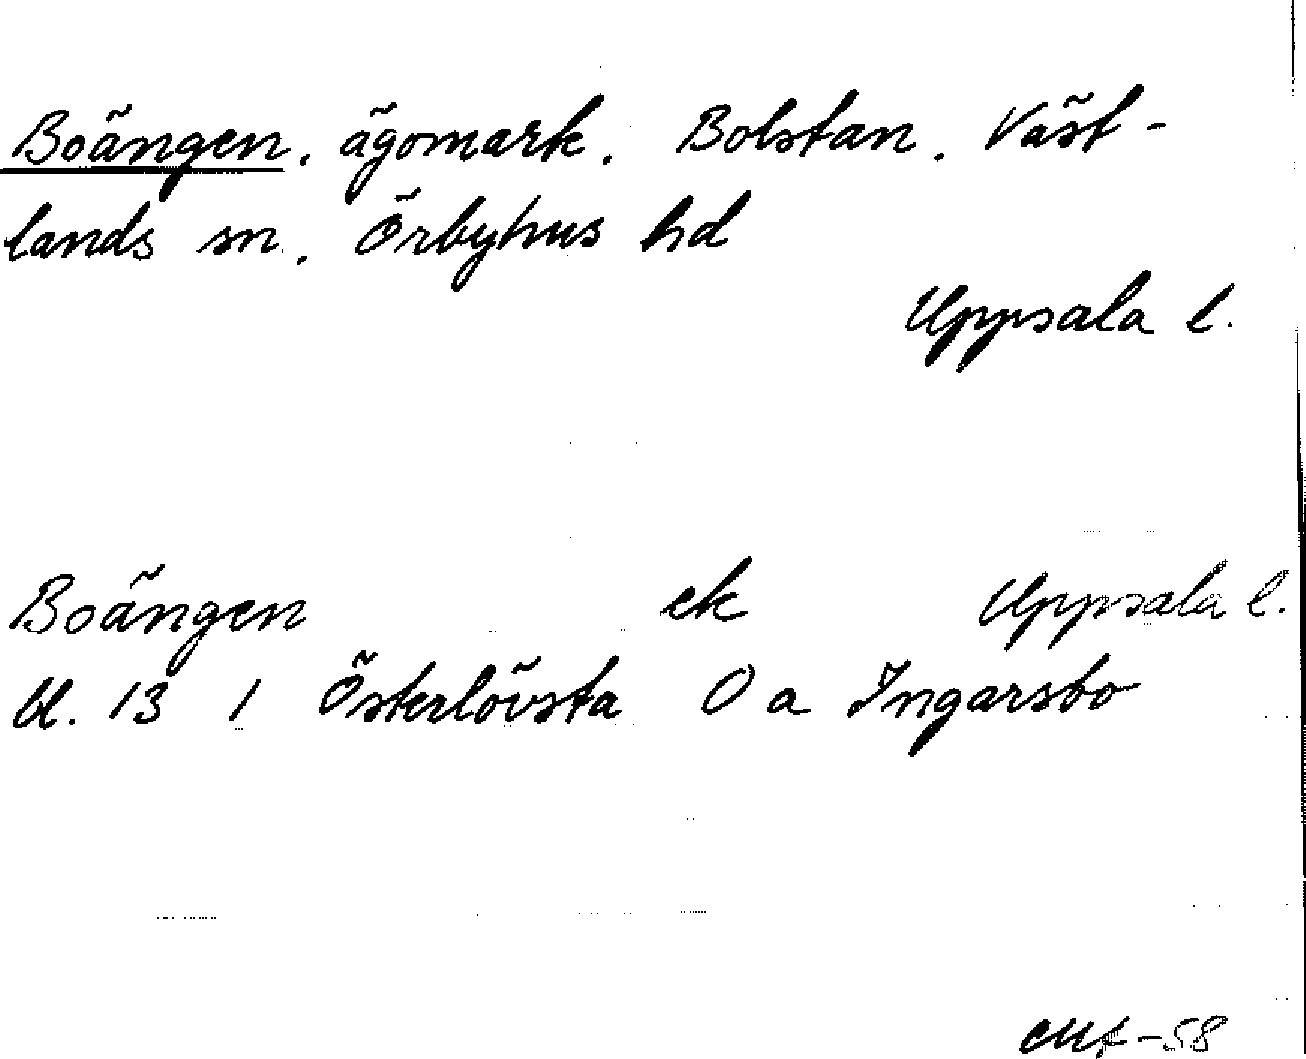 Boängen, ägomark. Bolstan. Väst-
lands sn. Örbyhus hd
Uppsala l.
Boängen ek Uppsala l.
U. 13 1 Österlövsta O a Ingarsbo
-58